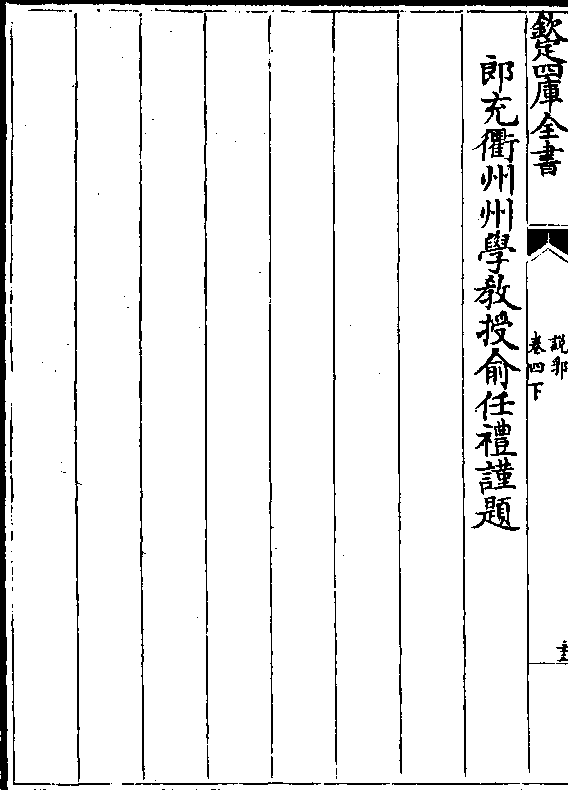 欽定四庫全書
說郛
卷四下
郎充衢州州學教授俞任禮謹題